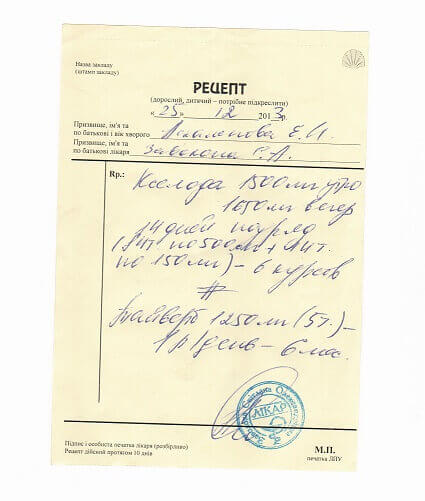 Назва закладу
(штамп закладу)
РЕЦЕПТ
(дорослий, дитячий – потрібне підкреслити)
« 25 » 12 2013 р.
Прізвище, ім'я та
по батькові і вік хворого Е. И.
Прізвище, ім'я та
по батькові лікаря С. А.
Rp.: Кселода 1500 мг утро
1650 мг вечер
14 дней подряд
по 500мг + 1 шт.
по 150 мг) – 6 курсов
#
Тайверб 1250 мг (5т.) –
1 р/день – 6 мес.
ЛІКАР
Підпис і особиста печатка лікаря (розбірливо)
Рецепт дійсний протягом 10 днів
М.П.
печатка ЛПУ